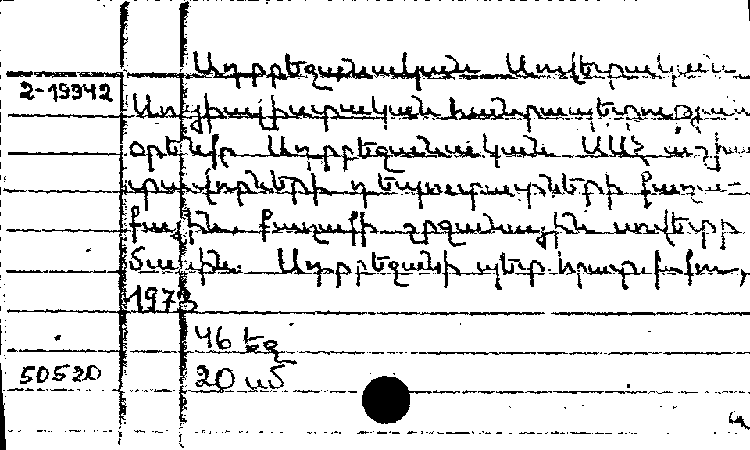 Ադրբեջանական Սովետական
2-19942 Սոցիալիստական հանրապետության
օրենքը Ադրբեջանական ՍՍՀ աշխա
տավորների դեպուտատների քաղա-
քային, քաղաքի շրջանային սովետի
մասին. Ադրբեջանի պետ. հրատ. Բաքու,
1973
46 եզ
50520 20 սմ